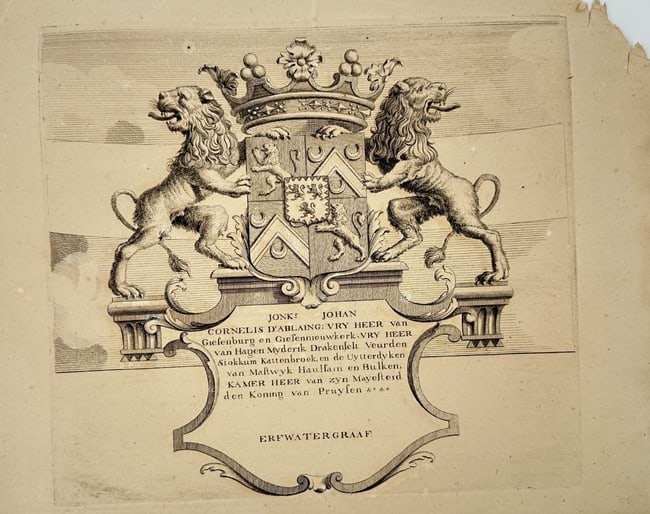 JONKr JOHAN
CORNELIS D'ABLAING: VRY HEER van
Giesenburg en Giesennieuwkerk, VRY HEER
van Hagen Myderik Drakenfelt Veurden
Stokkum Kattenbroek, en de Uytterdyken
van Mastwyk Haulsain en Bulken,
KAMER HEER van zyn Mayesteid
den Koning van Pruysen &c &c
ERFWATERGRAAF